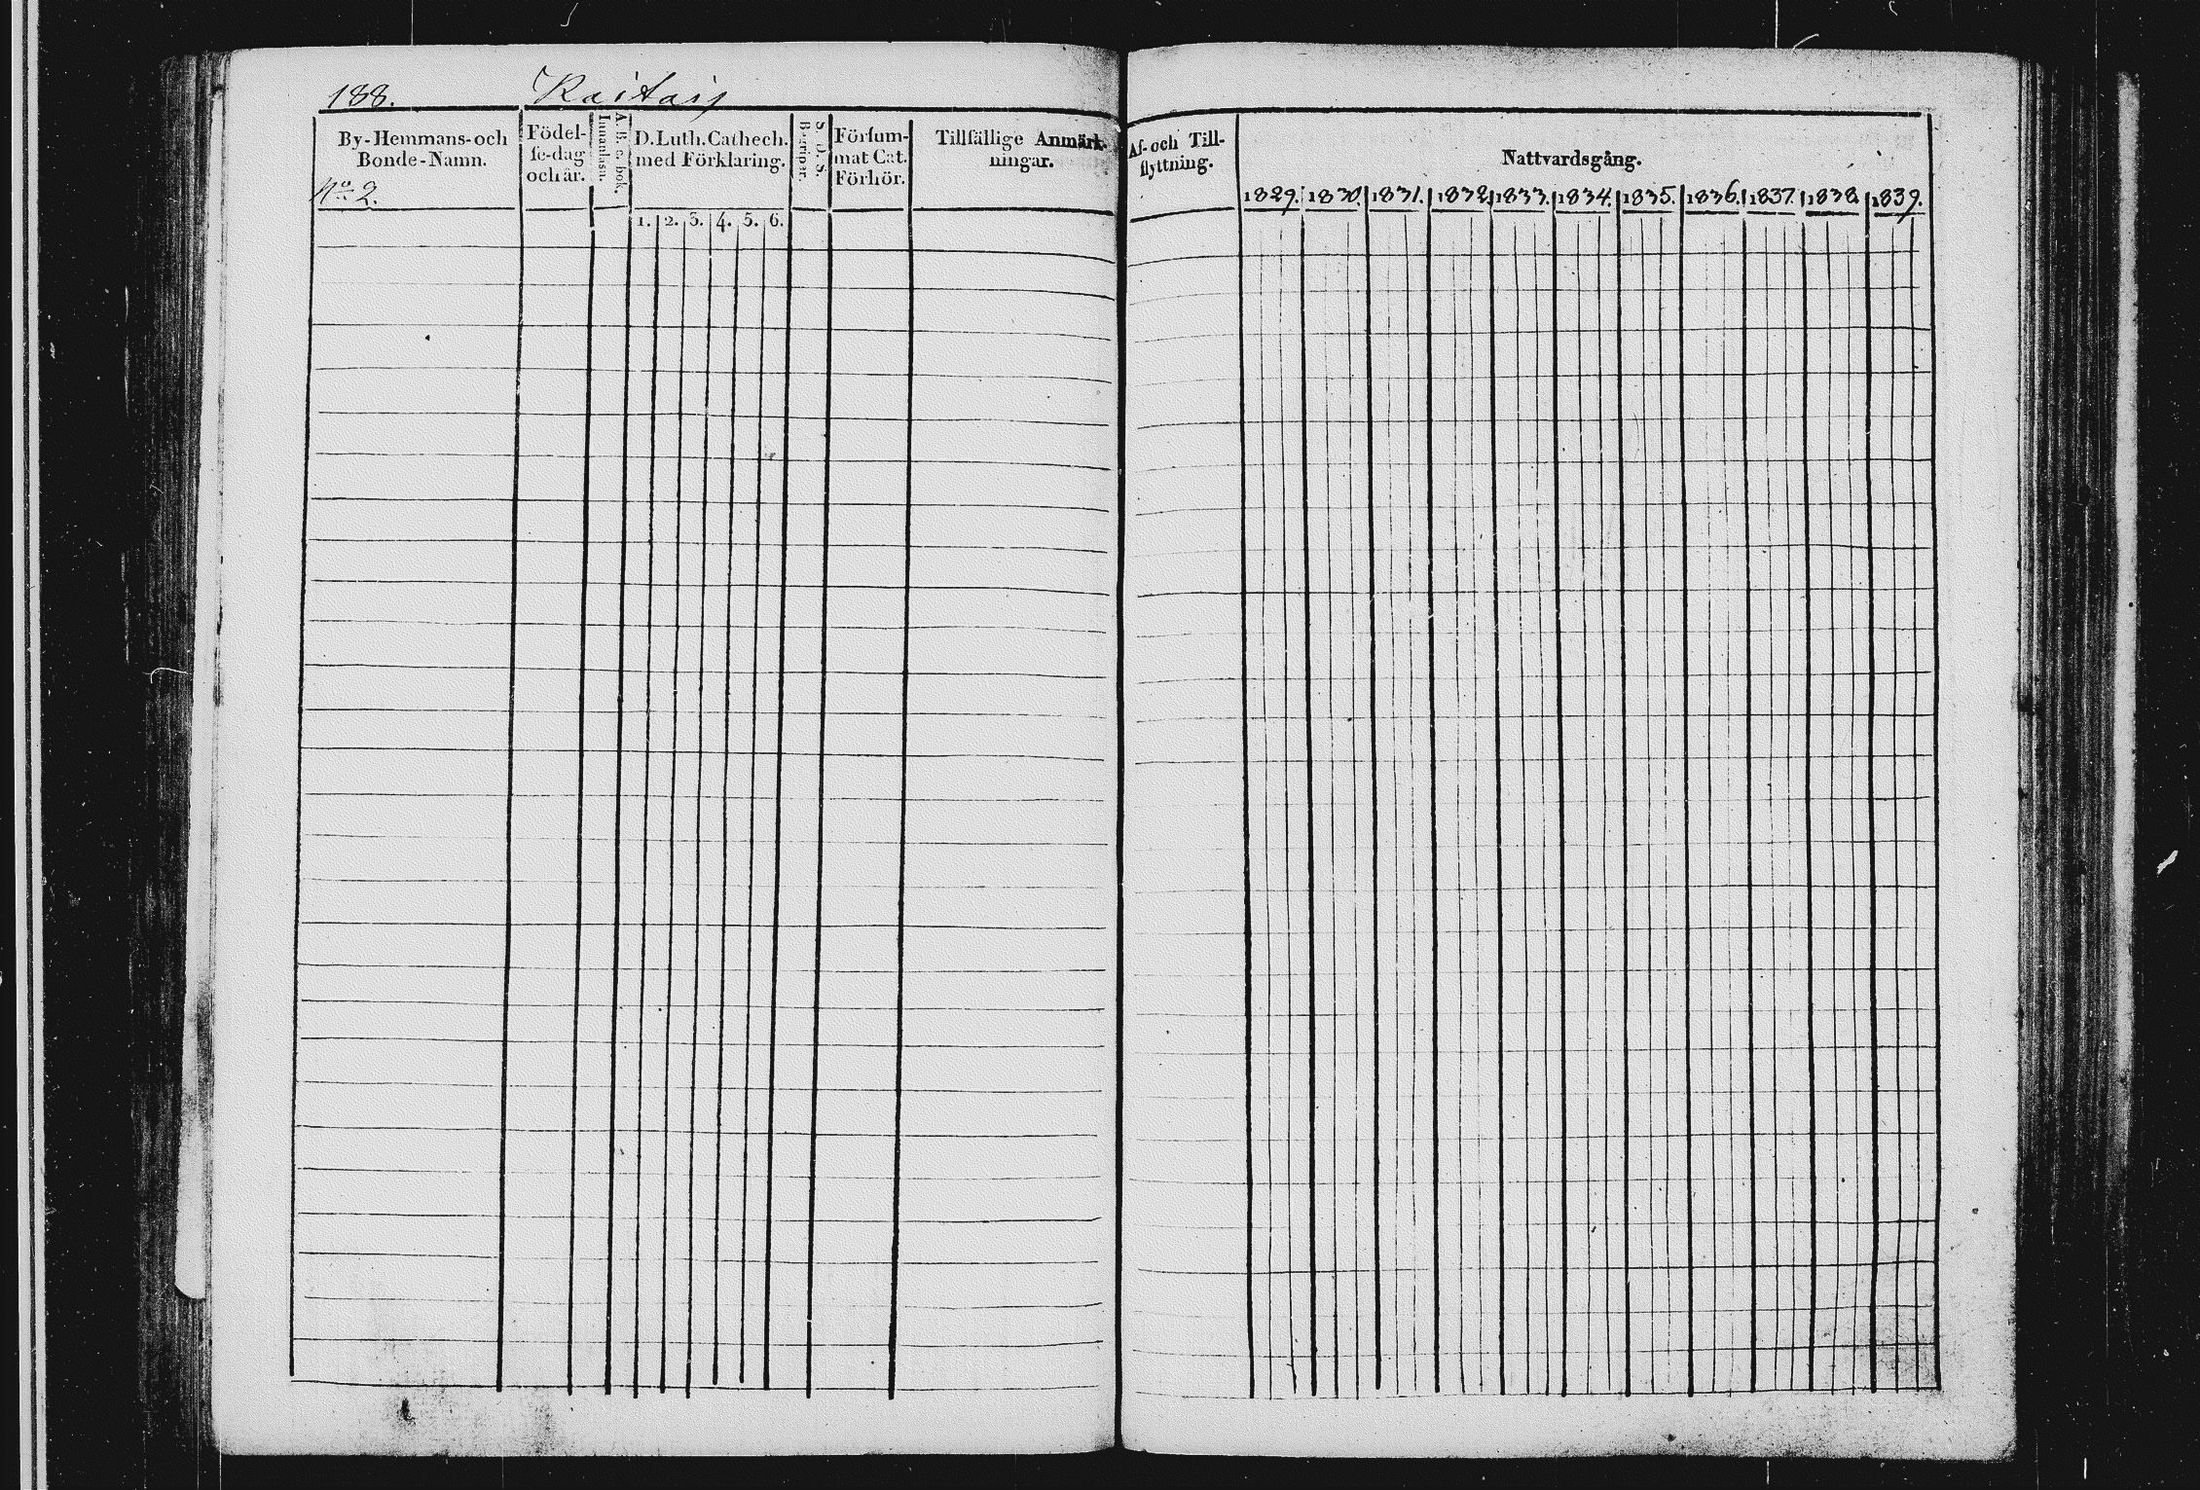 188. Raitais
By-Hemmans-och
Bonde-Namn.
No 2.
Födel-
se-dag
och år.
A. B. C. bok.
Innanläsn.
D. Luth. Cathech.
med Förklaring.
1. 2. 3. 4. 5. 6.
S. D. S.
Begriper.
Försum-
mat Cat.
Förhör.
Tillfällige Anmärk-
ningar.
Af- och Till-
flyttning.
Nattvardsgång.
1829. 1830. 1831. 1832. 1833. 1834. 1835. 1836. 1837. 1838. 1839.